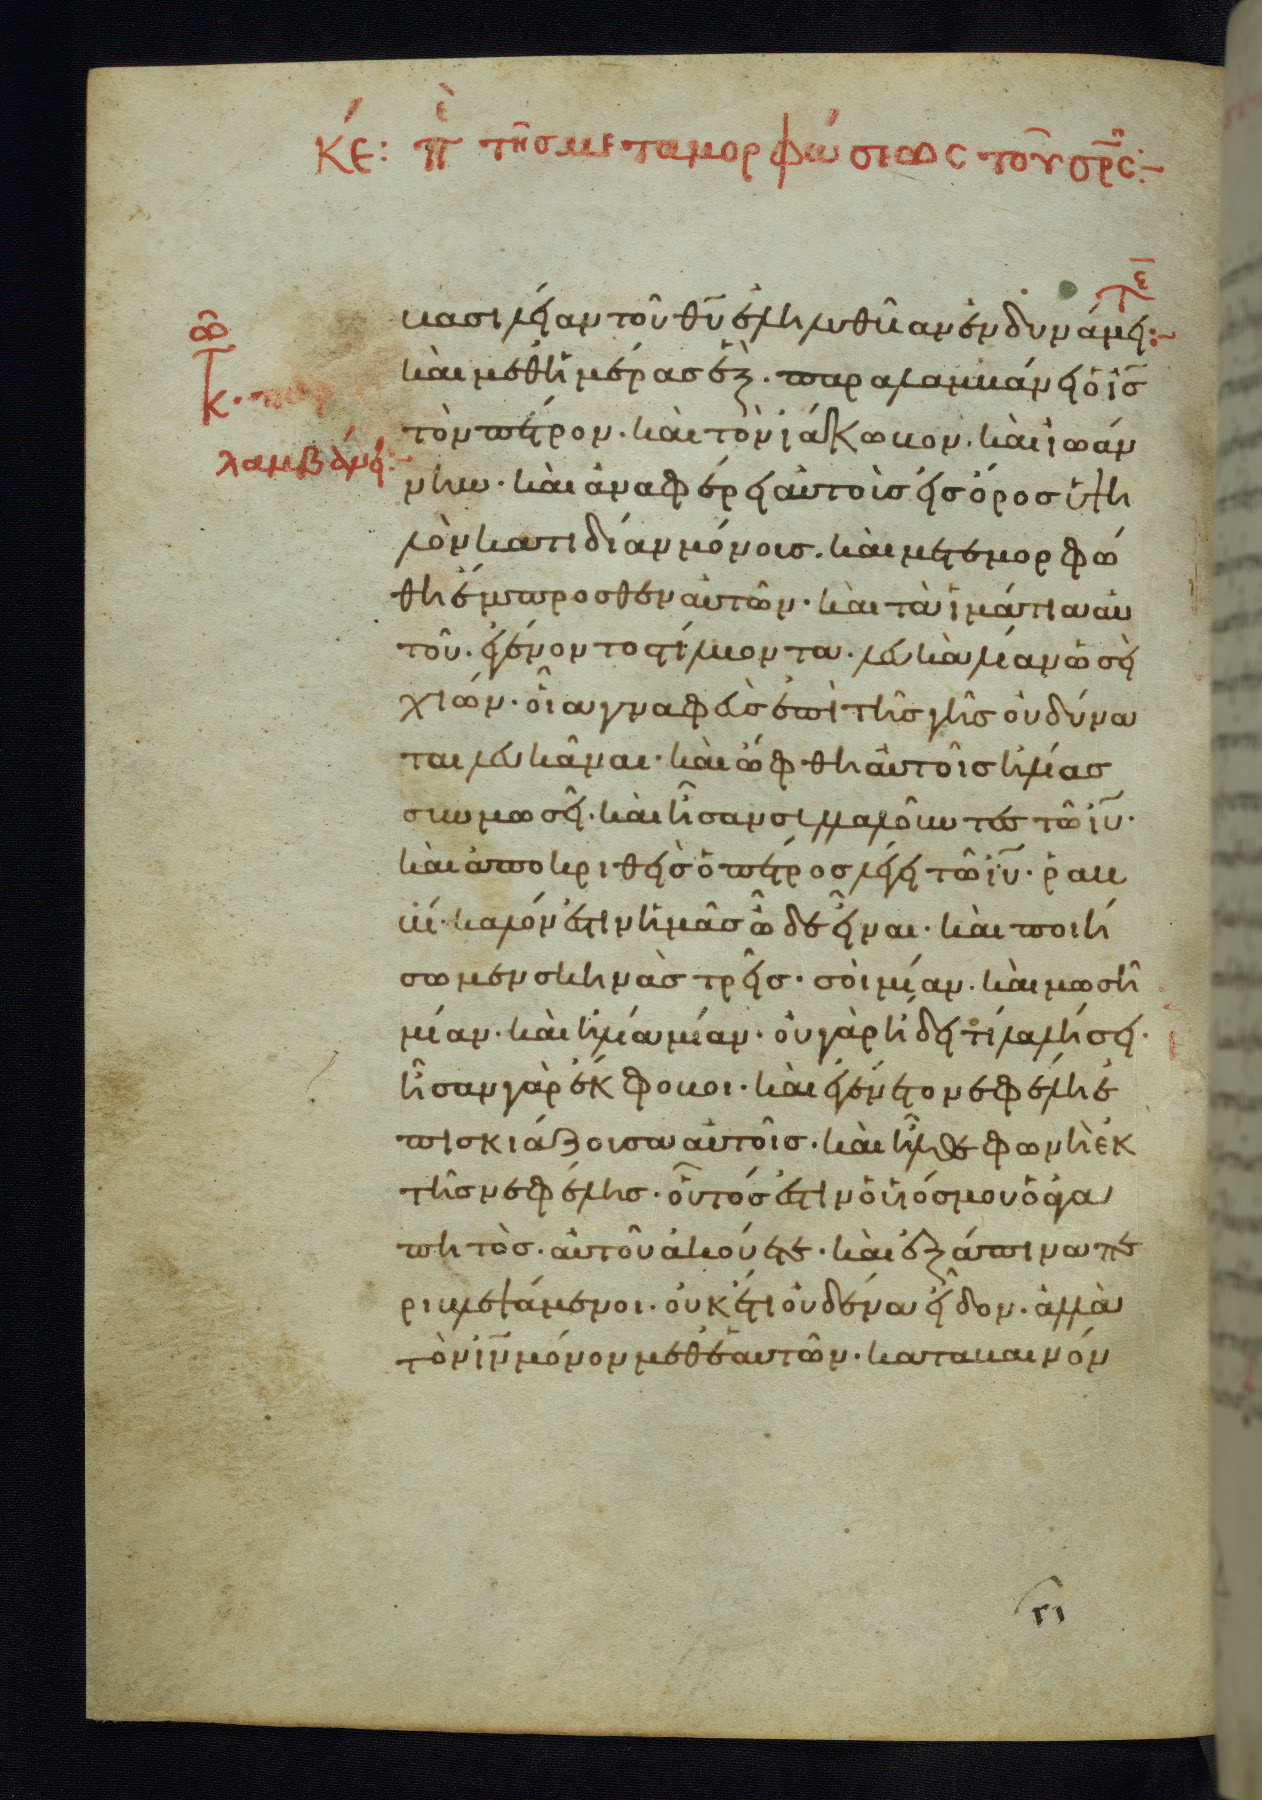 κε: πε τῆς μεταμορφώσεως τοῦ σρ̅ς:-
τε
βασιλείαν τοῦ θῦ ἐληλυθυῖαν ἐν δυνάμει:
καὶ μεθ ἡμέρας ἓξ. παραλαμβάνει ὁ ἰς̅
τὸν πέτρον. καὶ τὸν ἰάκωβον. καὶ ἰωάν
λαμβάνει:
νην. καὶ ἀναφέρει αὐτοὺς εἰς ὄρος ὑψη
λὸν κατιδίαν μόνους. καὶ μετεμορφώ
θη ἔμπροσθεν αὐτῶν. καὶ τὰ ἱμάτια αὐ
τοῦ. ἐγένοντο στίλβοντα. λευκὰ λίαν ὡσεὶ
χιών. οἷα γναφεὺς ἐπὶ τῆς γῆς οὐ δύνα
ται λευκᾶναι. καὶ ὤφθη αὐτοῖς ἠλίας
σὺν μωσεῖ. καὶ ἦσαν συλλαλοῦντες τῶ ἰυ̅.
καὶ ἀποκριθεὶς ὁ πέτρος λέγει τῶ ἰυ̅. ῥαβ
βί. καλόν ἐστιν ἡμᾶς ὧδε εἶναι. καὶ ποιή
σωμεν σκηνὰς τρεῖς. σοὶ μίαν. καὶ μωσῆ
μίαν. καὶ ἠλία μίαν. οὐ γὰρ ἤδει τί λαλήσει.
ἦσαν γὰρ ἔκφοβοι. καὶ ἐγένετο νεφέλη ἐ
πισκιάζουσα αὐτοῖς. καὶ ἦλθε φωνὴ ἐκ
τῆς νεφέλης. οὗτός ἐστιν ὁ υἱός μου ὁ ἀγα
πητὸς. αὐτοῦ ἀκούετε. καὶ ἐξάπινα πε
ριβλεψάμενοι. οὐκέτι οὐδένα εἶδον. ἀλλὰ
τὸν ἰν̅ μόνον μεθ ἑαυτῶν. καταβαινόν
γι